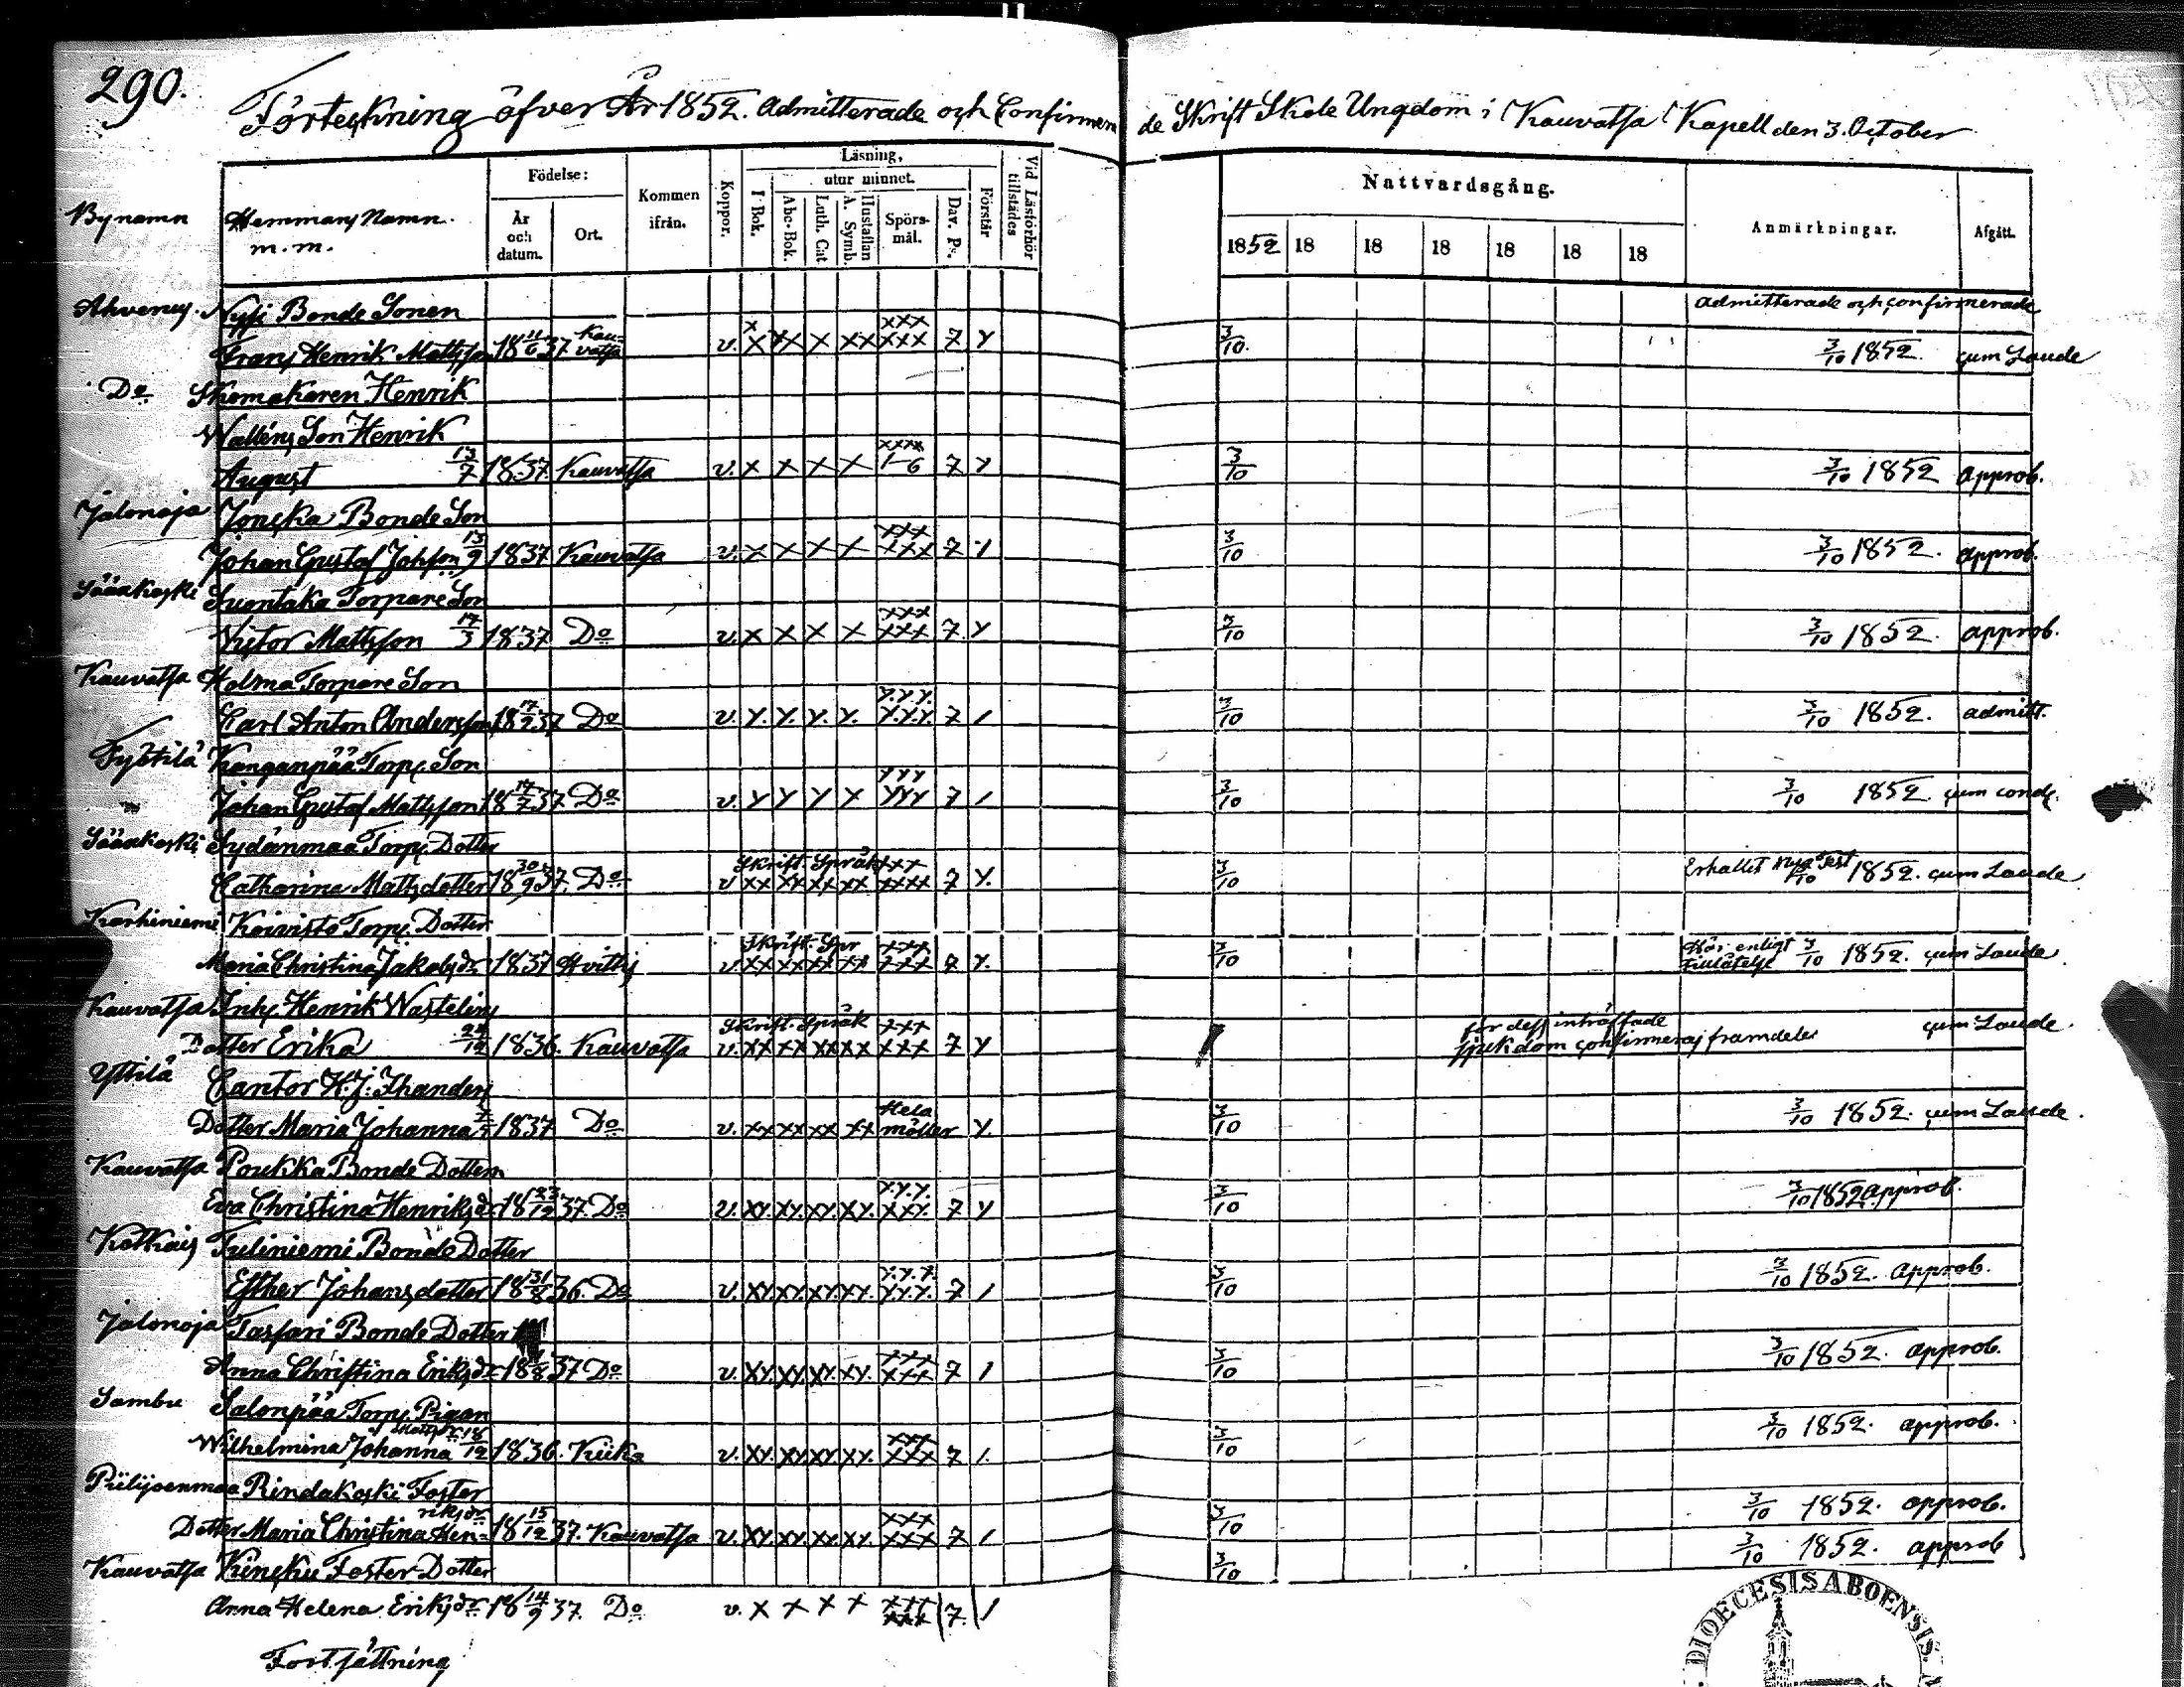 290.
Förteckning öfver År 1852. Admitterade och Confirmera de Skrift Skole Ungdom i Kauvatsa Kapell den 3. October
Bynamn
Hemmans Namn m.m.
Födelse:
År och datum.
Ort.
Kommen ifrån.
Koppor.
Läsning,
I Bok.
utur minnet.
Abc-Bok.
Luth. Cat.
Hustaflan A. Symb.
Spörs-mål.
Dav. Ps.
Förstår
Vid Läsförhör tillstädes
Nattvardsgång.
1852 18 18 18 18 18 18
Anmärkningar.
Afgått.
Ahvenus Nyssi Bonde Sonen admitterade och confirmerade
Frans Henrik Mattsson 18 11/6 37 Kauvatsa v. x x x x xx xxx xxx 7 y 3/10. 3/10 1852. cum Laude
Do Skomakaren Henrik
Walléns Son Henrik
August 13/7 1837 Kauvatsa v. x x x x xxxx 1-6 7 y 3/10 3/10 1852 approb.
Jalonoja Jonska Bonde Son
Johan Gustaf Johsson 13/9 1837 Kauvatsa v. x x x x xxx xxx 7 1 3/10 3/10 1852. approb.
Sääkoski Suontaka Torpare Son
Victor Mattsson 17/3 1837 Do v. x x x x xxx xxx 7 y 3/10 3/10 1852. approb.
Kauvatsa Holma Torpare Son
Carl Anton Andersson 18 17/2 37 Do v. y. y. y. y. y.y.y. y.y.y. 7 1 3/10 3/10 1852. admitt.
Työtilä Kanganpää Torp. Son
Johan Gustaf Mattsson 18 17/7 37 Do v. y y y x yyy yyy 7 1 3/10 3/10 1852. cum cond.
Sääkoski Sydänmaa Torp. Dotter
Catharina Mattsdotter 18 30/9 37. Do Skrift. Språk xxx v xx xx xx xx xxxx 7 y. 3/10 Erhållit Nya Test 3/10 1852. cum Laude
Karhiniemi Koivisto Torp. Dotter
Maria Christina Jakobsdr 1837 Hvittis Skrift. Spr xxx v. xx xx xx xx xxx 7 y. 3/10 Här enligt tillåtelse 3/10 1852. cum Laude
Kauvatsa Inh. Henrik Wastelins
Dotter Erika 24/12 1836. Kauvatsa Skrift. Språk xxx v. xx xx xx xx xxx 7 y för dess inträffade sjukdom confirmeras framdeles cum Laude.
Yttilä Cantor H.J. Thanders
Dotter Maria Johanna 1837 Do v. xx xx xx xx Hela y. 3/10 3/10 1852. cum Laude.
Kauvatsa Poukka Bonde Dottern
Eva Christina Henriksdr 18 23/12 37. Do v. xy. xy. xy. xy. y.y.y. xxy. 7 y 3/10 3/10 1852 approb.
Kotkais Tuliniemi Bonde Dotter
Esther Johansdotter 18 31/8 36. Do v. xy. xy. xy. xy. y.y.y. y.y.y. 7 1 3/10 3/10 1852. approb.
Jalonoja Tasfari Bonde Dotter
Anna Christina Eriksdr 37 Do v. xy. xy. xy. xy. xxx xxx 7 1 3/10 3/10 1852. approb.
Sambu Salonpää Torp. Pigan
Wilhelmina Johanna Mattsdr 18/12 1836. Kiika v. xy. xy. xy. xy. xxx xxx 7 1. 3/10 3/10 1852. approb.
Piilijoenmaa Rindakoski Foster
Dotter Maria Christina Henriksdr 18 15/12 37. Kauvatsa v. xy. xy. xy. xy. xxx xxx 7 1 3/10 3/10 1852. approb.
Kauvatsa Kinsku Foster Dotter 3/10 3/10 1852. approb
Anna Helena Eriksdr 18 14/9 37. Do v. x x x x xxx xxx 7. 1
Fortsättning
DIOECESIS ABOENSIS.